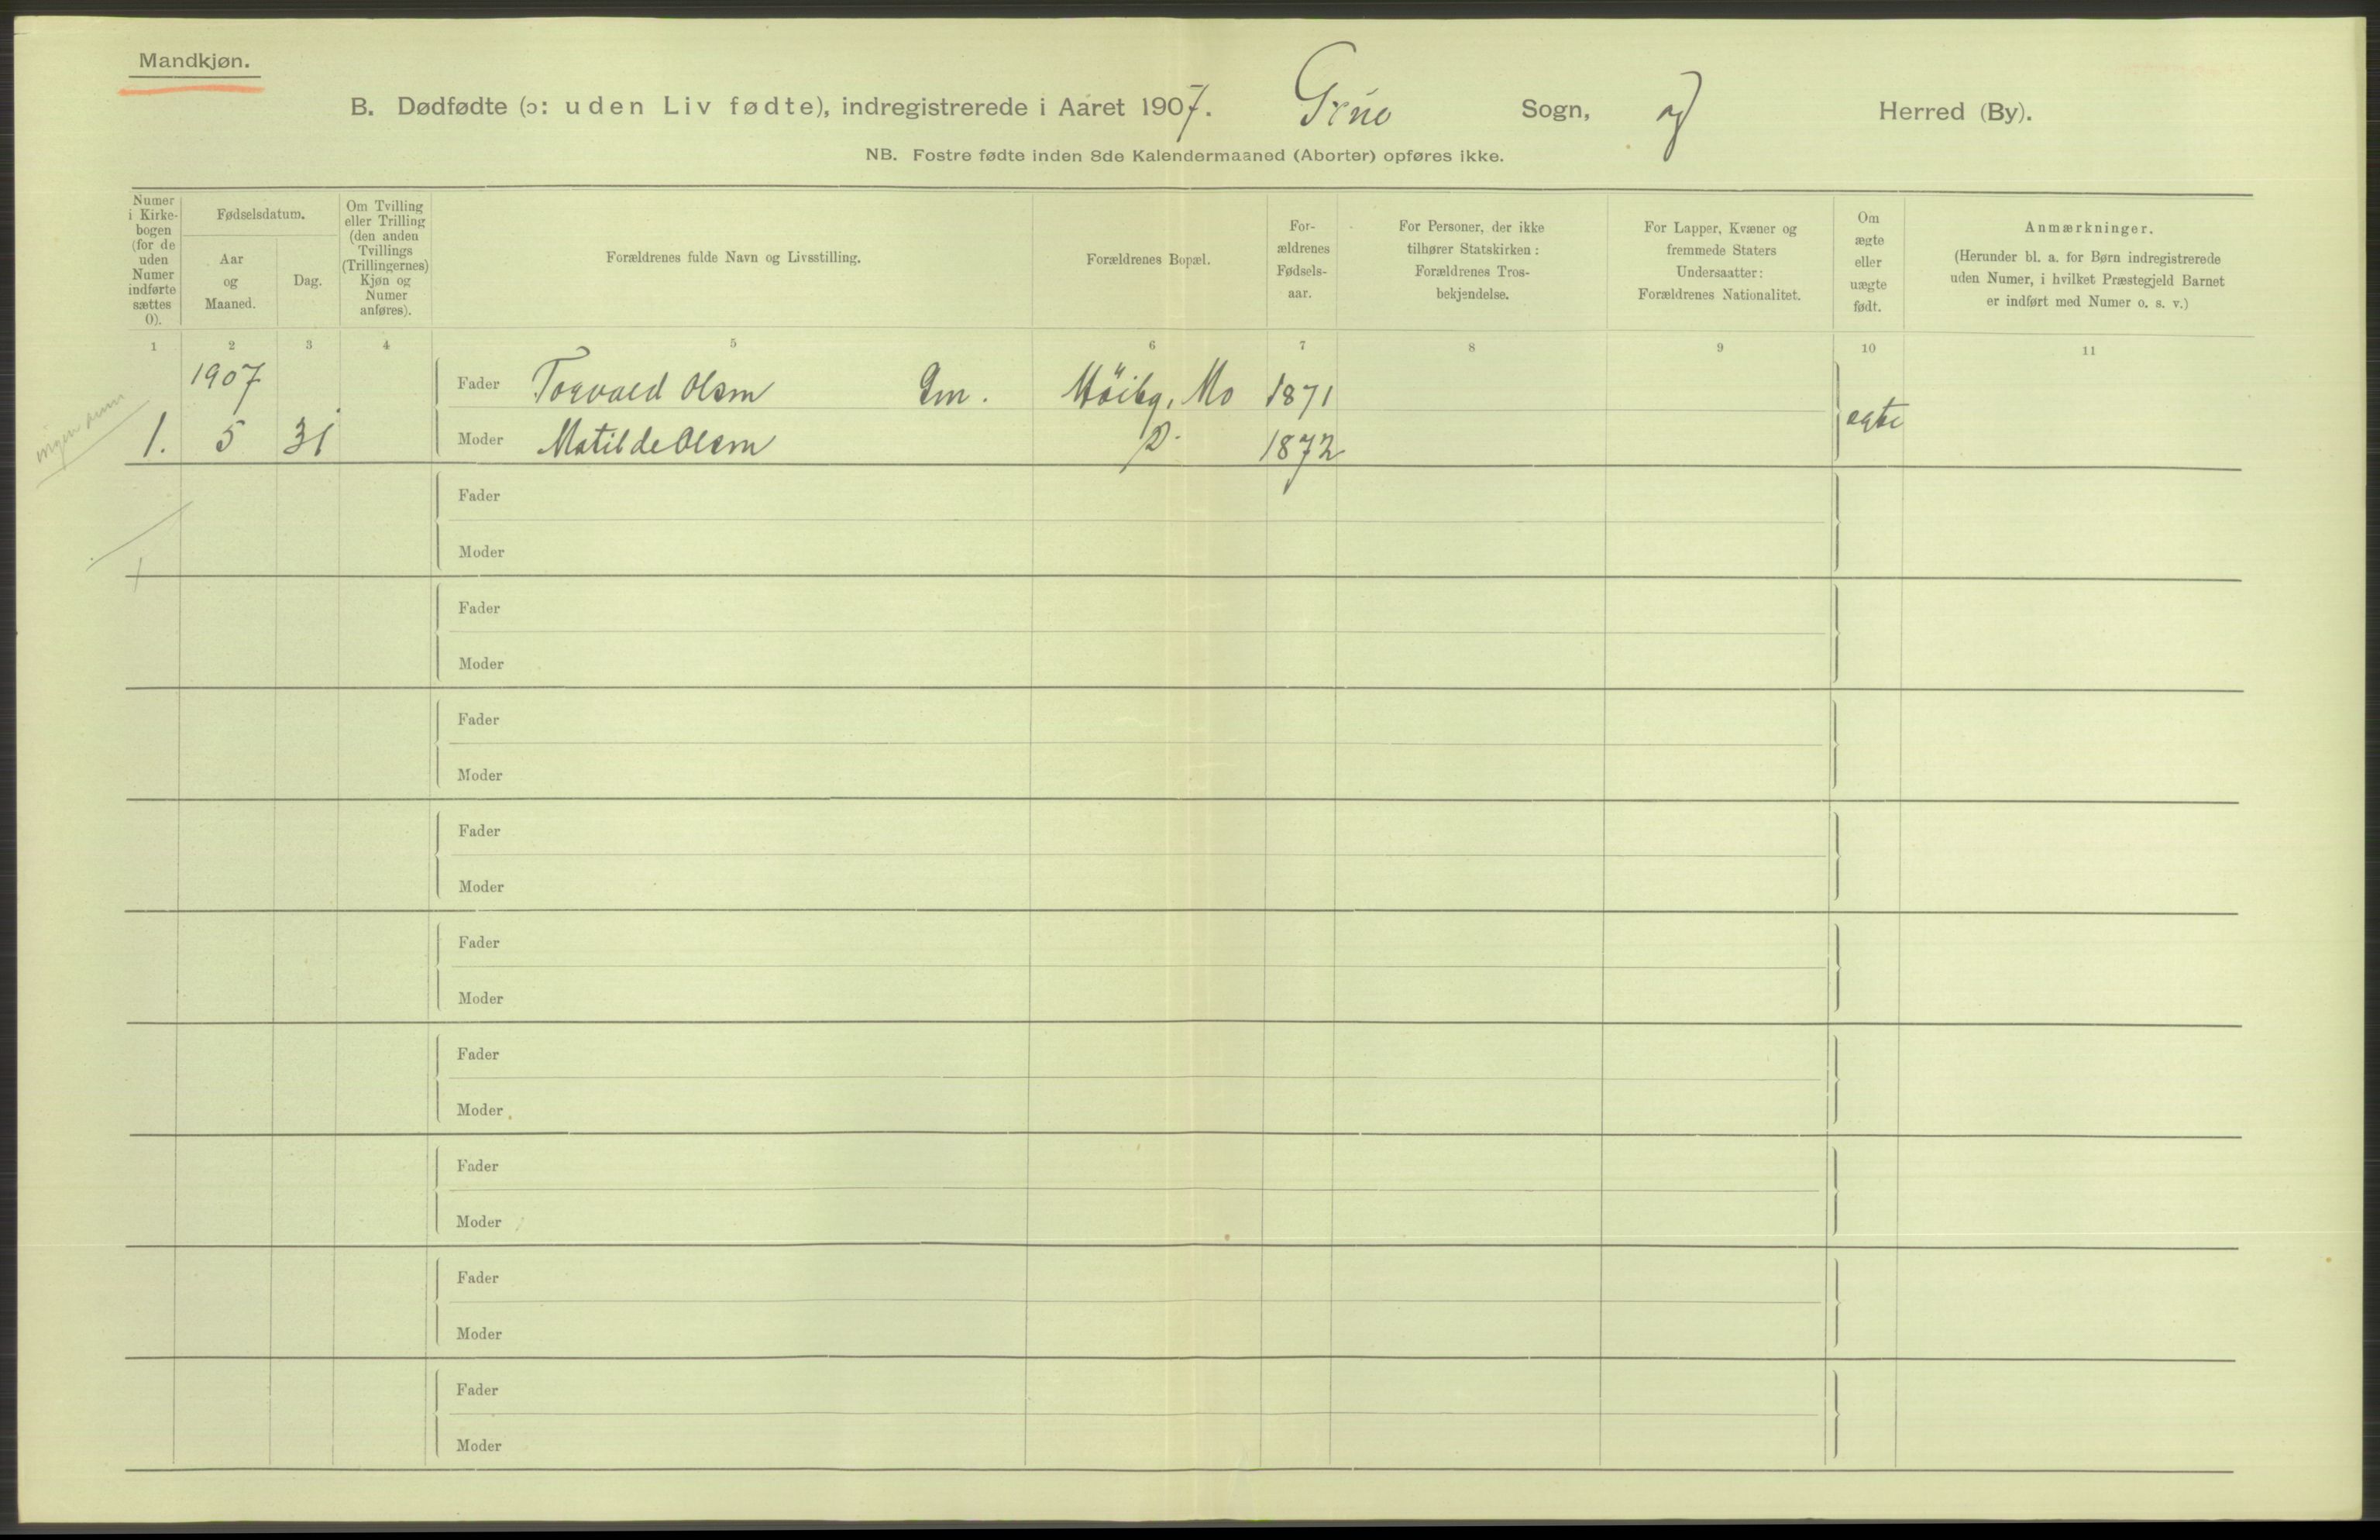 Mandkjøn.
B. Dødfødte (ɔ: uden Liv fødte), indregistrerede i Aaret 1907. Grue Sogn, og Herred (By).
NB. Fostre fødte inden 8de Kalendermaaned (Aborter) opføres ikke.
Numer
i Kirke-
bogen
(for de
uden
Numer
indførte
sættes
0).
Fødselsdatum.
Aar
og
Maaned.
Dag.
Om Tvilling
eller Trilling
(den anden
Tvillings
(Trillingernes)
Kjøn og
Numer
anføres).
Forældrenes fulde Navn og Livsstilling.
Forældrenes Bopæl.
For-
ældrenes
Fødsels-
aar.
For Personer, der ikke
tilhører Statskirken:
Forældrenes Tros-
bekjendelse.
For Lapper, Kvæner og
fremmede Staters
Undersaatter:
Forældrenes Nationalitet.
Om
ægte
eller
uægte
født.
Anmærkninger.
(Herunder bl. a. for Børn indregistrerede
uden Numer, i hvilket Præstegjeld Barnet
er indført med Numer o. s. v.)
1 2 3 4 5 6 7 8 9 10 11
1907
Fader Torvald Olsen Gm. Mo 1871
1. 5 31 Moder Matilde Olsen D. 1872 ægte
Fader
Moder
Fader
Moder
Fader
Moder
Fader
Moder
Fader
Moder
Fader
Moder
Fader
Moder
Fader
Moder
Fader
Moder